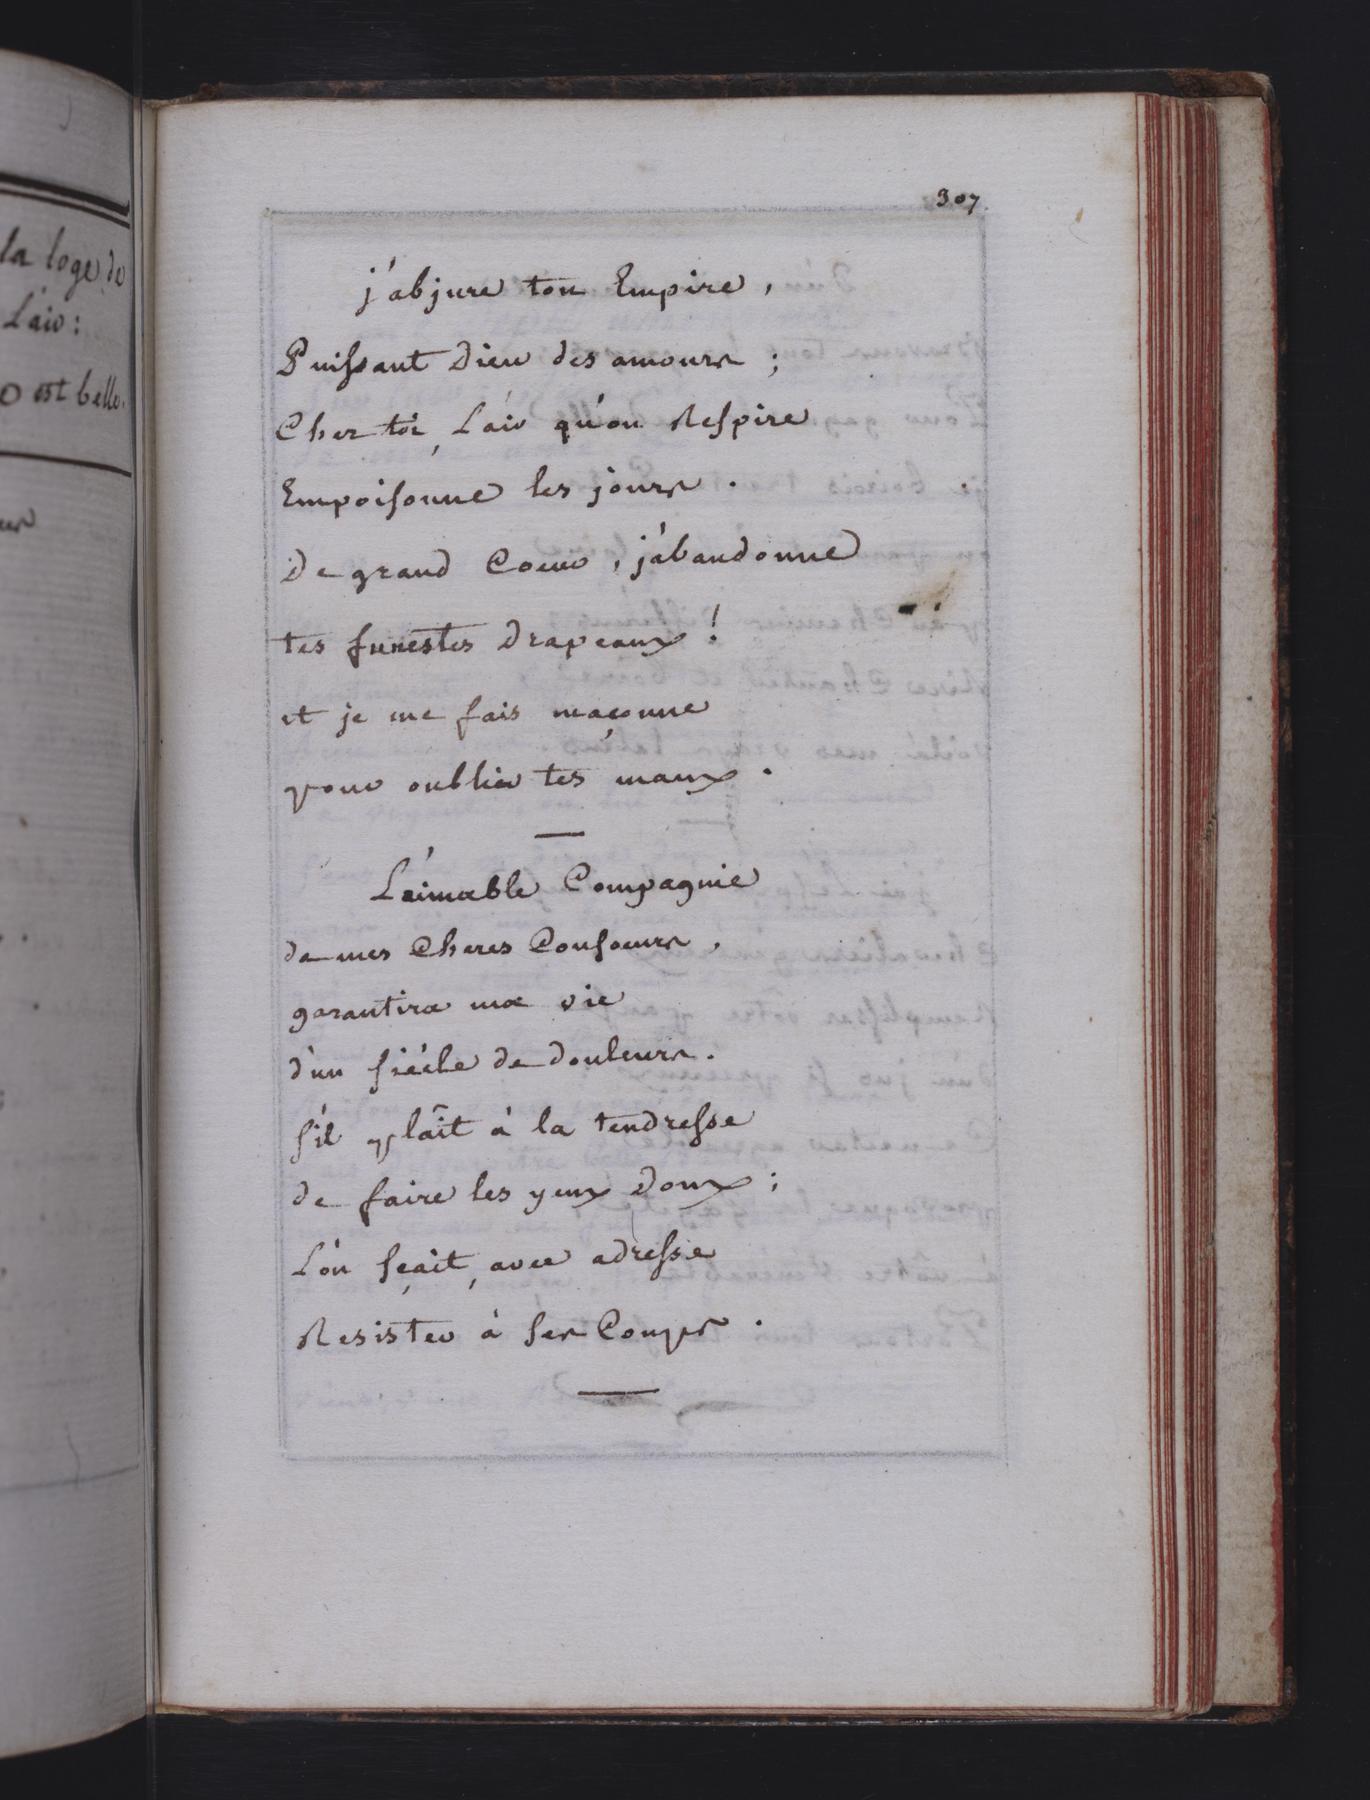 la loge de
L'air:
o est belle.
307
j'abjure ton Empire,
Puissant Dieu des amours;
Chez toi, L'air qu'on Respire
Empoisonne les jours.
De grand Coeur, j'abandonne
tes funestes Drapeaux!
et je me fais maçonne
pour oublier tes maux.
L'aimable Compagnie
de mes Cheres Consoeurs,
garantira ma vie
d'un siécle de douleurs.
s'il plaît à la tendresse
de faire les yeux doux;
L'on sçait, avec adresse
Resister à ses Coups.